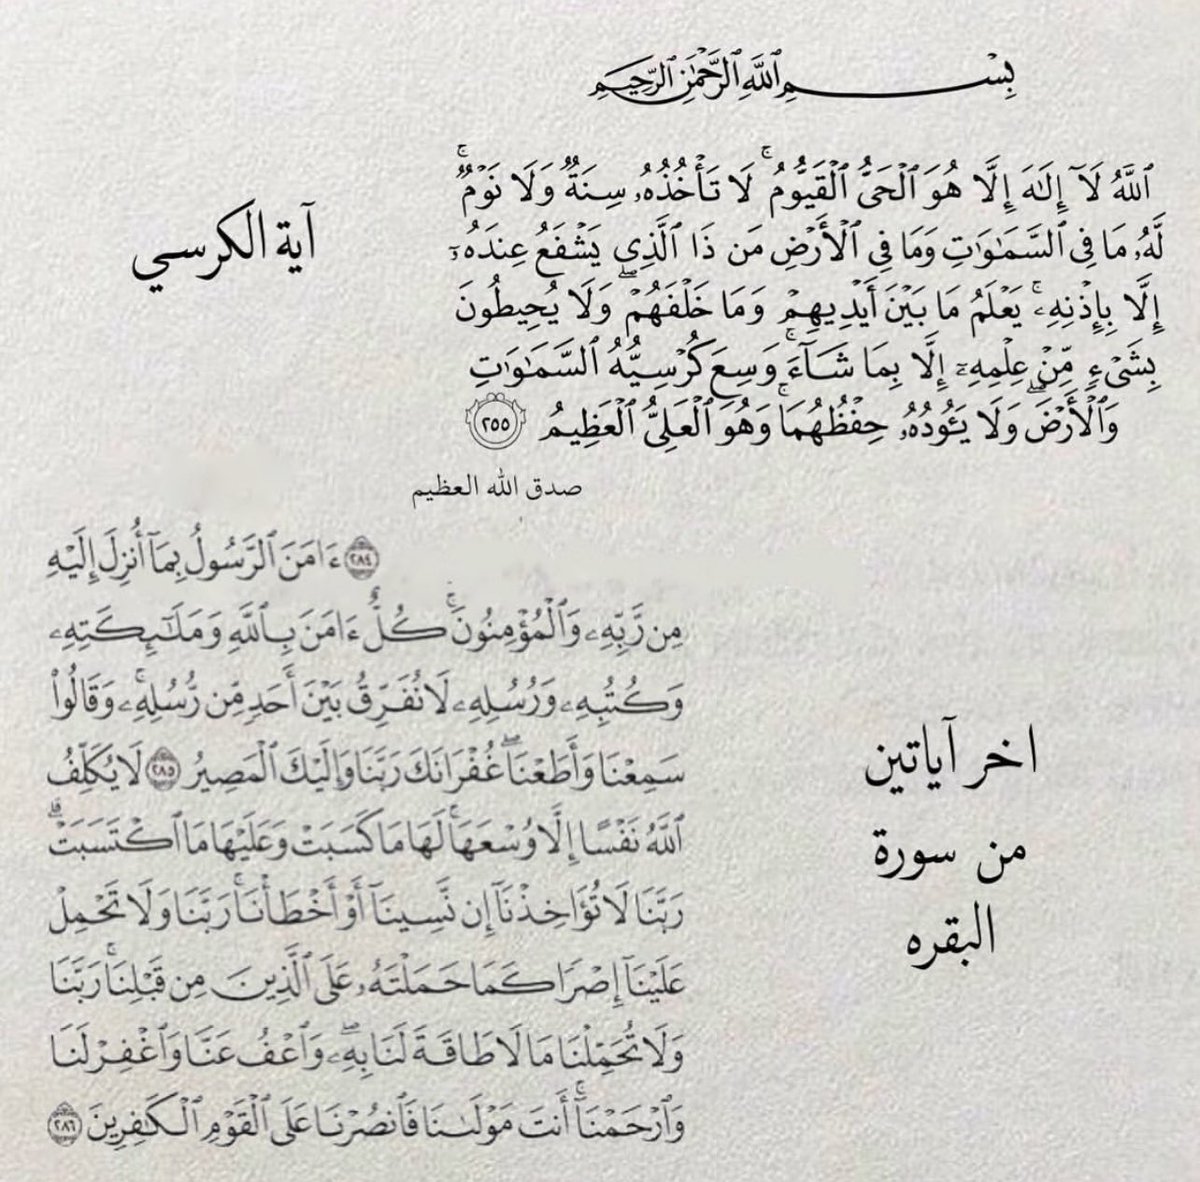 بِسْمِ ٱللَّهِ ٱلرَّحْمَٰنِ ٱلرَّحِيمِ
آية الكرسي
ٱللَّهُ لَآ إِلَٰهَ إِلَّا هُوَ ٱلْحَىُّ ٱلْقَيُّومُ ۚ لَا تَأْخُذُهُۥ سِنَةٌ وَلَا نَوْمٌ ۚ
لَّهُۥ مَا فِى ٱلسَّمَٰوَٰتِ وَمَا فِى ٱلْأَرْضِ مَن ذَا ٱلَّذِى يَشْفَعُ عِندَهُۥٓ
إِلَّا بِإِذْنِهِۦ ۚ يَعْلَمُ مَا بَيْنَ أَيْدِيهِمْ وَمَا خَلْفَهُمْ ۖ وَلَا يُحِيطُونَ
بِشَىْءٍ مِّنْ عِلْمِهِۦٓ إِلَّا بِمَا شَآءَ ۚ وَسِعَ كُرْسِيُّهُ ٱلسَّمَٰوَٰتِ
وَٱلْأَرْضَ ۖ وَلَا يَـُٔودُهُۥ حِفْظُهُمَا ۚ وَهُوَ ٱلْعَلِىُّ ٱلْعَظِيمُ ٢٥٥
صدق الله العظيم
٢٨٤ ءَامَنَ ٱلرَّسُولُ بِمَآ أُنزِلَ إِلَيْهِ
مِن رَّبِّهِۦ وَٱلْمُؤْمِنُونَ ۚ كُلٌّ ءَامَنَ بِٱللَّهِ وَمَلَٰٓئِكَتِهِۦ
وَكُتُبِهِۦ وَرُسُلِهِۦ لَا نُفَرِّقُ بَيْنَ أَحَدٍ مِّن رُّسُلِهِۦ ۚ وَقَالُوا۟
سَمِعْنَا وَأَطَعْنَا ۖ غُفْرَانَكَ رَبَّنَا وَإِلَيْكَ ٱلْمَصِيرُ ٢٨٥ لَا يُكَلِّفُ
ٱللَّهُ نَفْسًا إِلَّا وُسْعَهَا ۚ لَهَا مَا كَسَبَتْ وَعَلَيْهَا مَا ٱكْتَسَبَتْ ۗ
رَبَّنَا لَا تُؤَاخِذْنَآ إِن نَّسِينَآ أَوْ أَخْطَأْنَا ۚ رَبَّنَا وَلَا تَحْمِلْ
عَلَيْنَآ إِصْرًا كَمَا حَمَلْتَهُۥ عَلَى ٱلَّذِينَ مِن قَبْلِنَا ۚ رَبَّنَا
وَلَا تُحَمِّلْنَا مَا لَا طَاقَةَ لَنَا بِهِۦ ۖ وَٱعْفُ عَنَّا وَٱغْفِرْ لَنَا
وَٱرْحَمْنَآ ۚ أَنتَ مَوْلَىٰنَا فَٱنصُرْنَا عَلَى ٱلْقَوْمِ ٱلْكَٰفِرِينَ ٢٨٦
اخر آياتين
من سورة
البقره